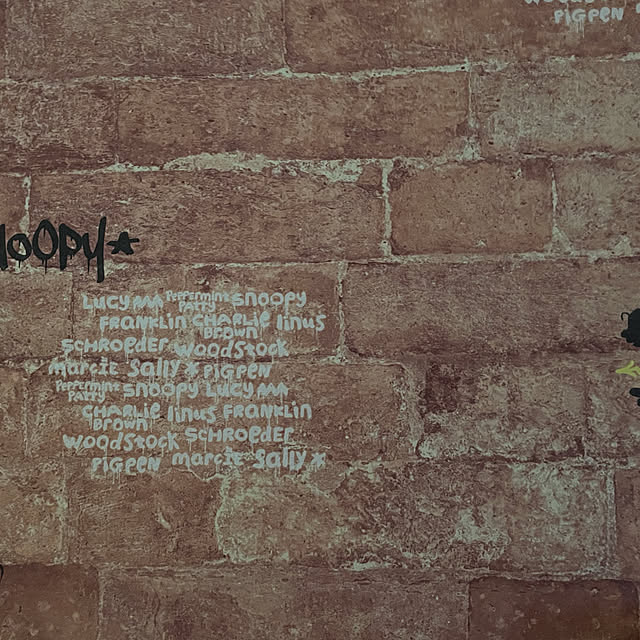 PIGPEN
NOOPY
LUCY PEPPERMINT PATTY SNOOPY
FRANKLIN CHARLIE BROWN linus
SCHROEDER WOODSTOCK
marcie Sally PIGPEN
PEPPERMINT PATTY SNOOPY LUCY
CHARLIE BROWN linus FRANKLIN
WOODSTOCK SCHROEDER
PIGPEN marcie Sally